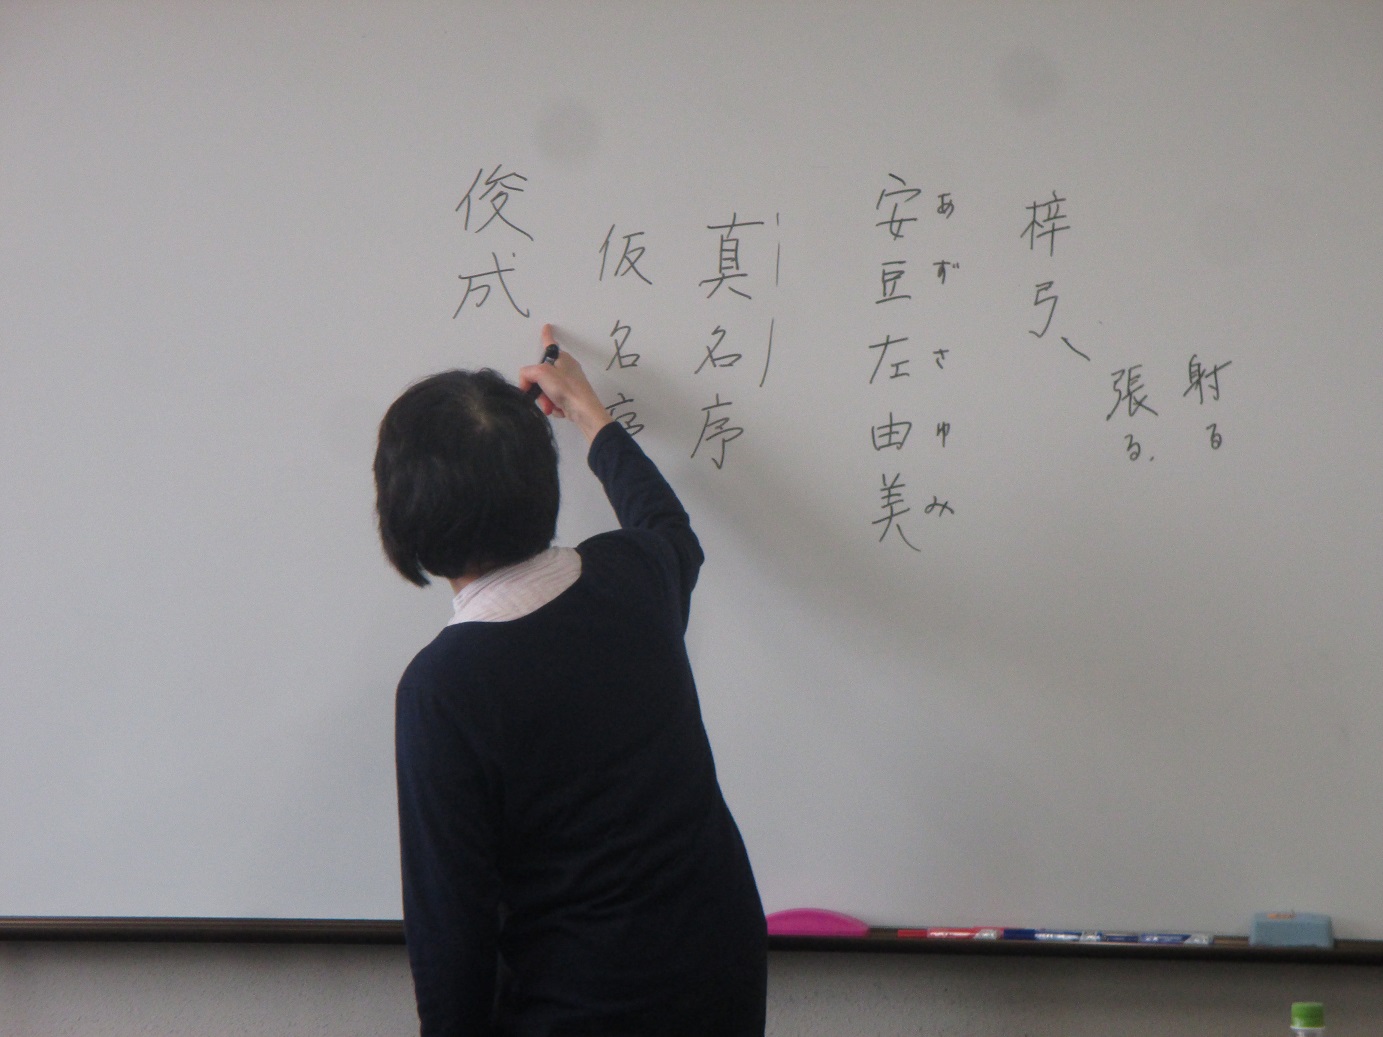 射る
張る
梓弓
あずさゆみ
安豆左由美
真名序
仮名序
俊成